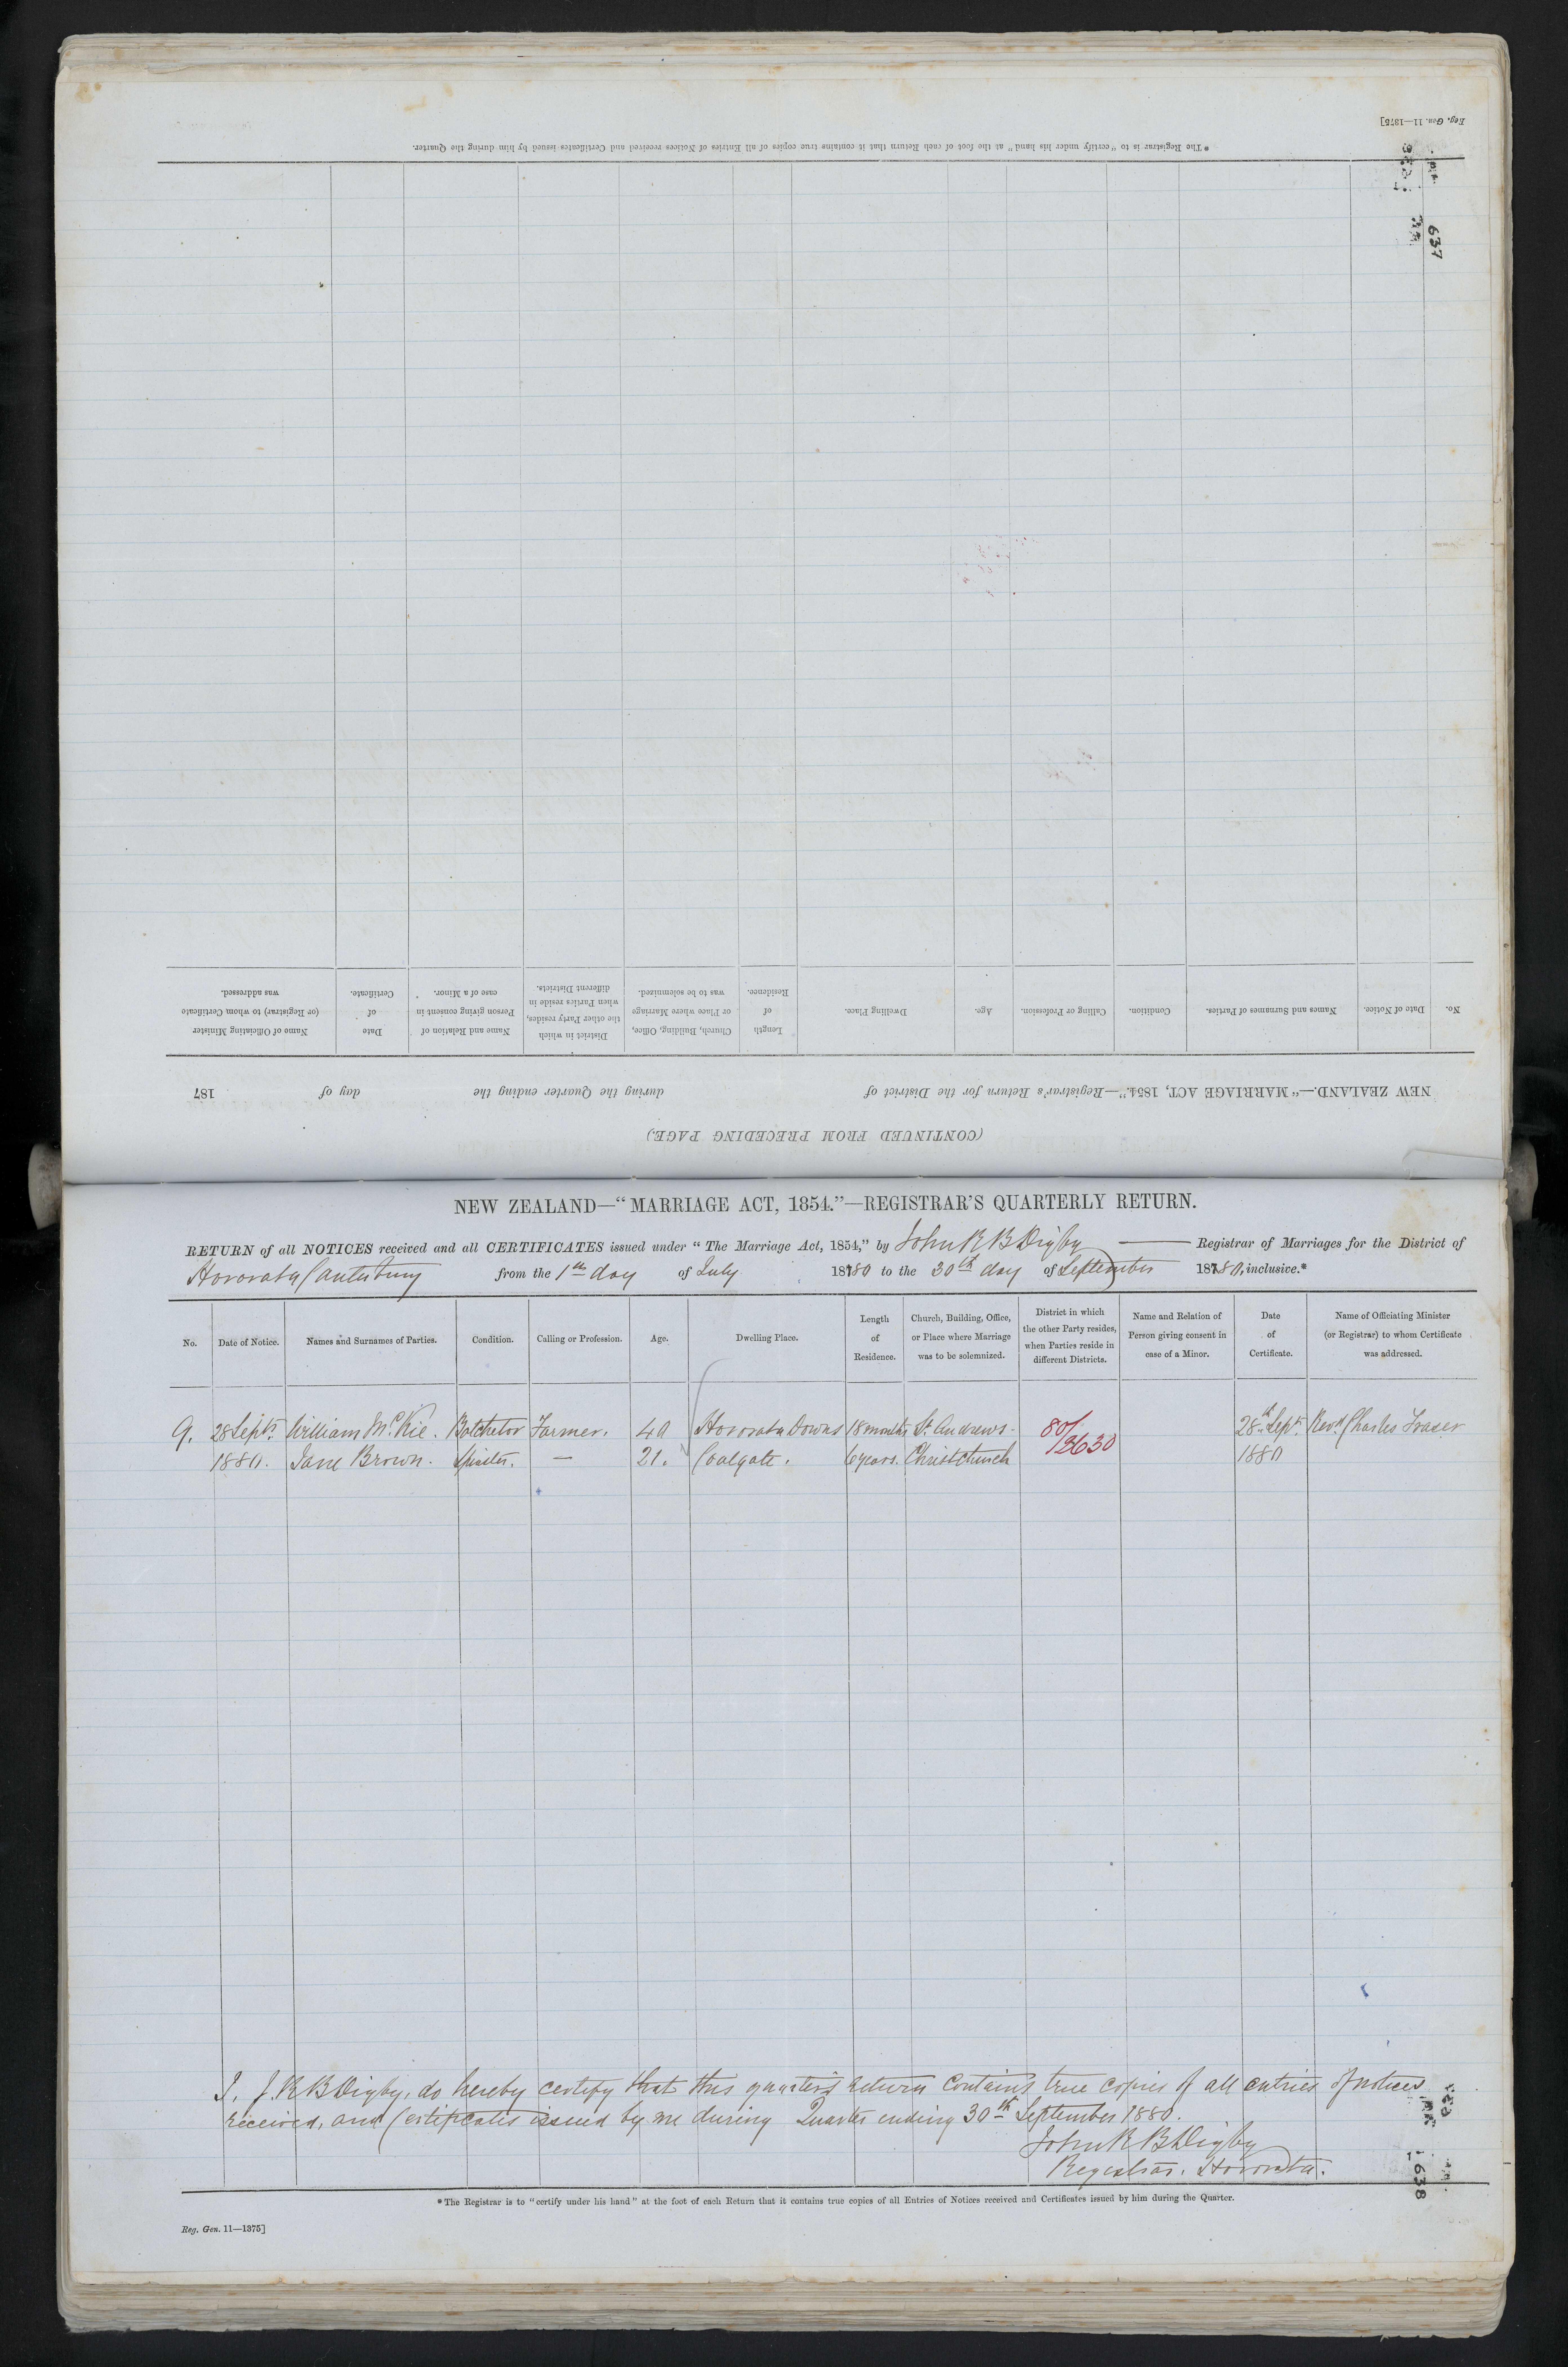 Reg. Gen. 11—1375]
* The Registrar is to "certify under his hand" at the foot of each Return that it contains true copies of all Entries of Notices received and Certificates issued by him during the Quarter.
637
(CONTINUED FROM PRECEDING PAGE.)
NEW ZEALAND.—"MARRIAGE ACT, 1854."—Registrar's Return for the District of during the Quarter ending the day of 187
No. Date of Notice. Names and Surnames of Parties. Condition. Calling or Profession. Age. Dwelling Place. Length of Residence. Church, Building, Office, or Place where Marriage was to be solemnized. District in which the other Party resides, when Parties reside in different Districts. Name and Relation of Person giving consent in case of a Minor. Date of Certificate. Name of Officiating Minister (or Registrar) to whom Certificate was addressed.
NEW ZEALAND—"MARRIAGE ACT, 1854."—REGISTRAR'S QUARTERLY RETURN.
RETURN of all NOTICES received and all CERTIFICATES issued under "The Marriage Act, 1854," by John R B Digby Registrar of Marriages for the District of
Hororata Canterbury from the 1st day of July 1880 to the 30th day of September 1880, inclusive.*
No. Date of Notice. Names and Surnames of Parties. Condition. Calling or Profession. Age. Dwelling Place. Length of Residence. Church, Building, Office, or Place where Marriage was to be solemnized. District in which the other Party resides, when Parties reside in different Districts. Name and Relation of Person giving consent in case of a Minor. Date of Certificate. Name of Officiating Minister (or Registrar) to whom Certificate was addressed.
9. 28 Sept. William McKie. Batchelor Farmer. 40 Hororata Downs 18 months St Andrews- 80/ 28th Sept. Revd Charles Fraser
1880. Jane Brown. Spinster. — 21. Coalgate. 6 years. Christchurch /3630 1880
I, J. R B Digby, do hereby certify that this quarter's return contains true copies of all entries of notices
received, and Certificates issued by me during Quarter ending 30th September 1880.
John R B Digby
Registrar. Hororata.
638
* The Registrar is to "certify under his hand" at the foot of each Return that it contains true copies of all Entries of Notices received and Certificates issued by him during the Quarter.
Reg. Gen. 11—1375]